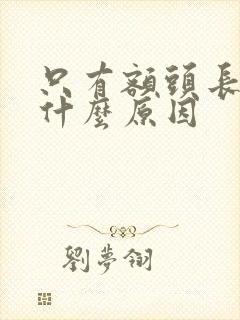 只有額頭長
什麼原因
劉夢翎